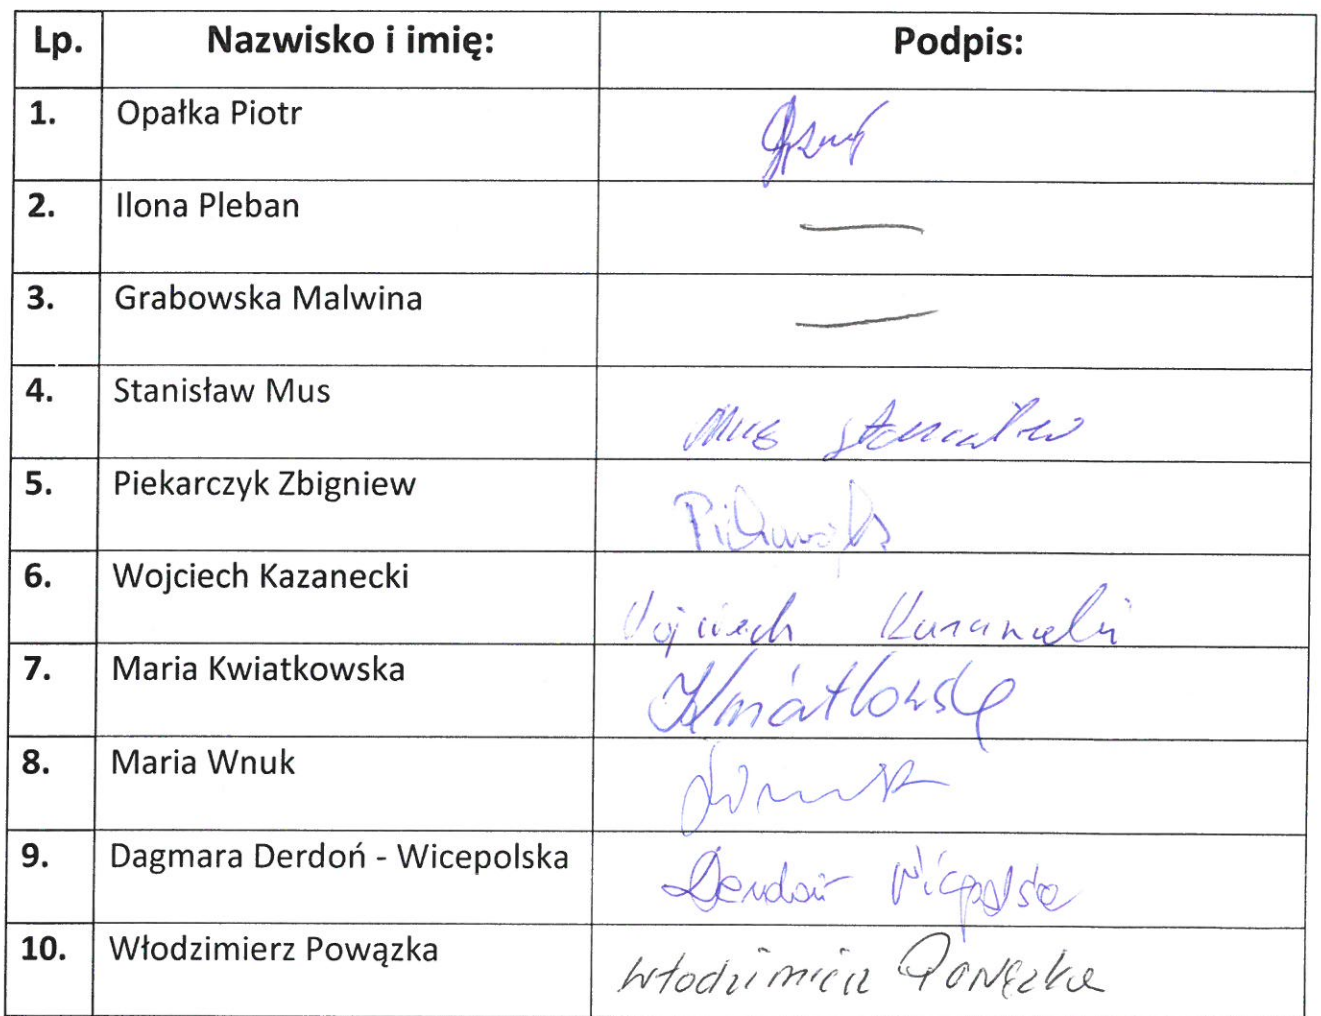 Lp. Nazwisko i imię: Podpis:
1. Opałka Piotr
2. Ilona Pleban —
3. Grabowska Malwina —
4. Stanisław Mus Mus Stanisław
5. Piekarczyk Zbigniew
6. Wojciech Kazanecki Wojciech Kazanecki
7. Maria Kwiatkowska Kwiatkowska
8. Maria Wnuk
9. Dagmara Derdoń - Wicepolska Derdoń Wicepolska
10. Włodzimierz Powązka Włodzimierz Powązka